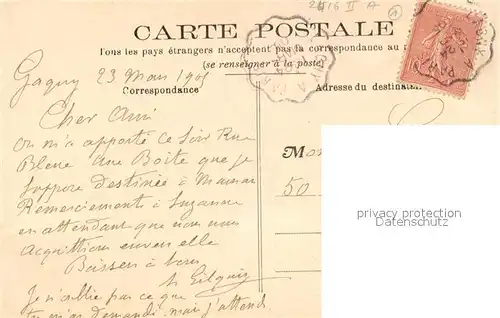 2416 II A
A
CARTE POSTALE
Tous les pays étrangers n'acceptent pas la correspondance au
(se renseigner à la poste)
Gagny 23 Mars 190
Correspondance
Adresse du destinatai
Cher Ami
On m'a apporté ce soir Rue
Bleue une Boite que je
suppose destinée à Maman
Remerciements à Suzanne
en attendant que nous nous
acquittions envers elle
Baisers à tous
Je n'oublie pas ce que
tu m'as demandé mais j'attends
Mo
50
privacy protection
Datenschutz